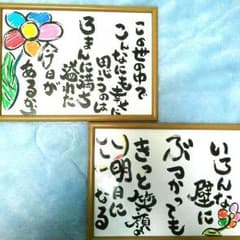 この世の中で
こんなにも幸せに
思うのは
ろまんに満ち溢れた
今日が
あるから
いろんな壁に
ぶつかっても
きっと笑顔の
明日になる